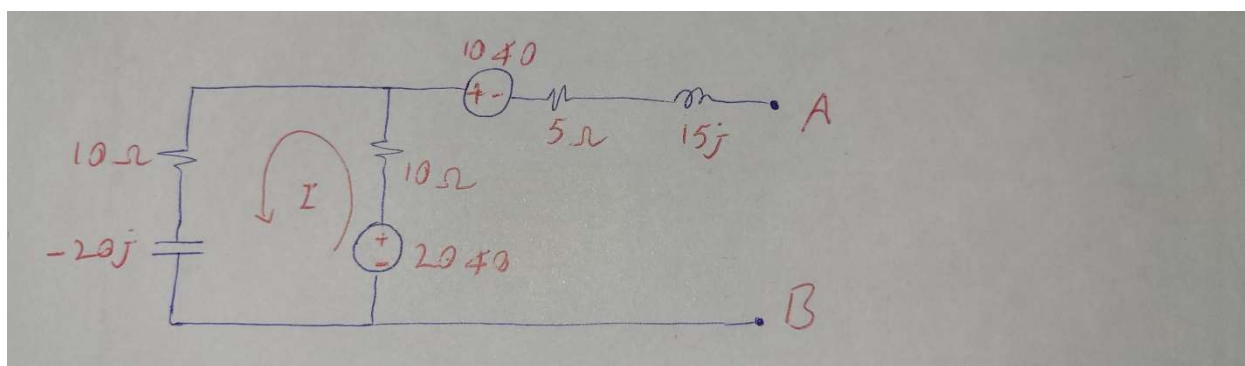 10∠0
+ -
5Ω
15j
A
10Ω
I
10Ω
-20j
+
-
20∠0
B